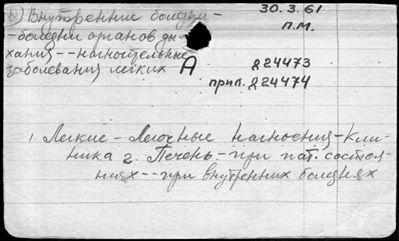 Внутренние болезни-
-болезни органов ды-
хания--нагноительные
заболевания легких
30.3.61
п.м.
А
д24473
прил. д24474
1. Легкие-Легочные нагноения-Кли-
ника 2. Печень-при пат. состоя-
ниях--при внутренних болезнях